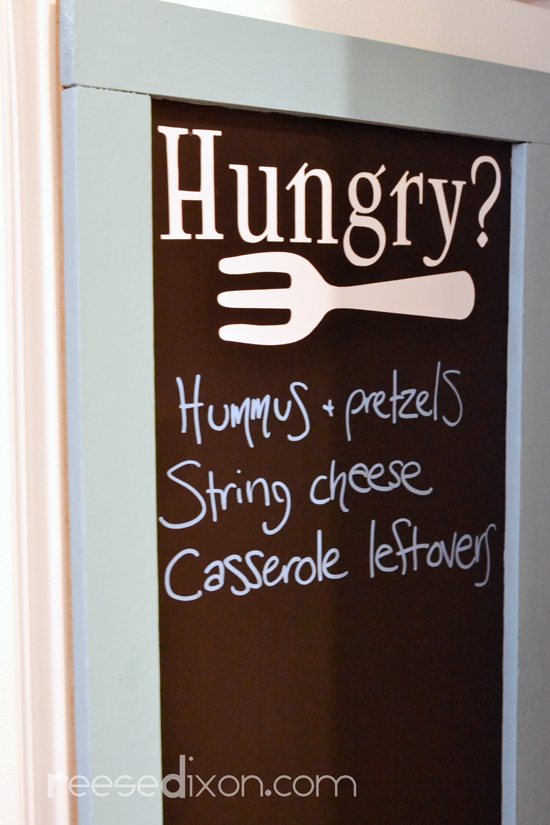 Hungry?
Hummus + pretzels
String cheese
Casserole leftovers
reesedixon.com